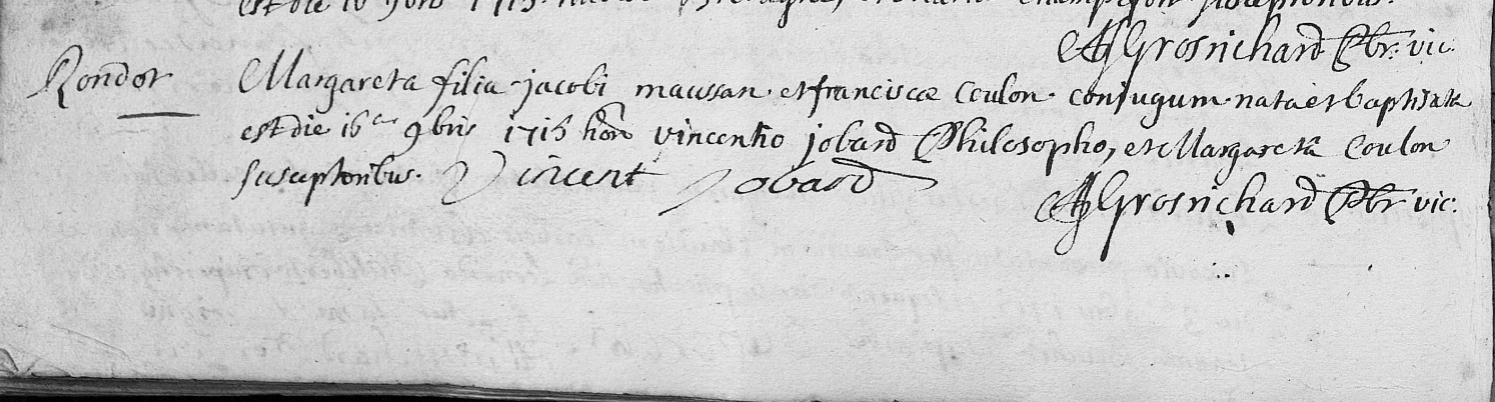 est die 16 9bris 1715
AGrosrichard Pbr: vic:
Rondot Margareta filia jacobi maussan et franciscæ Coulon conjugum nata et baptisata
est die 16 9bris 1715 vincentio jobard Philosopho, et Margareta Coulon
susceptoribus. Vincent Jobard
AGrosrichard Pbr vic: